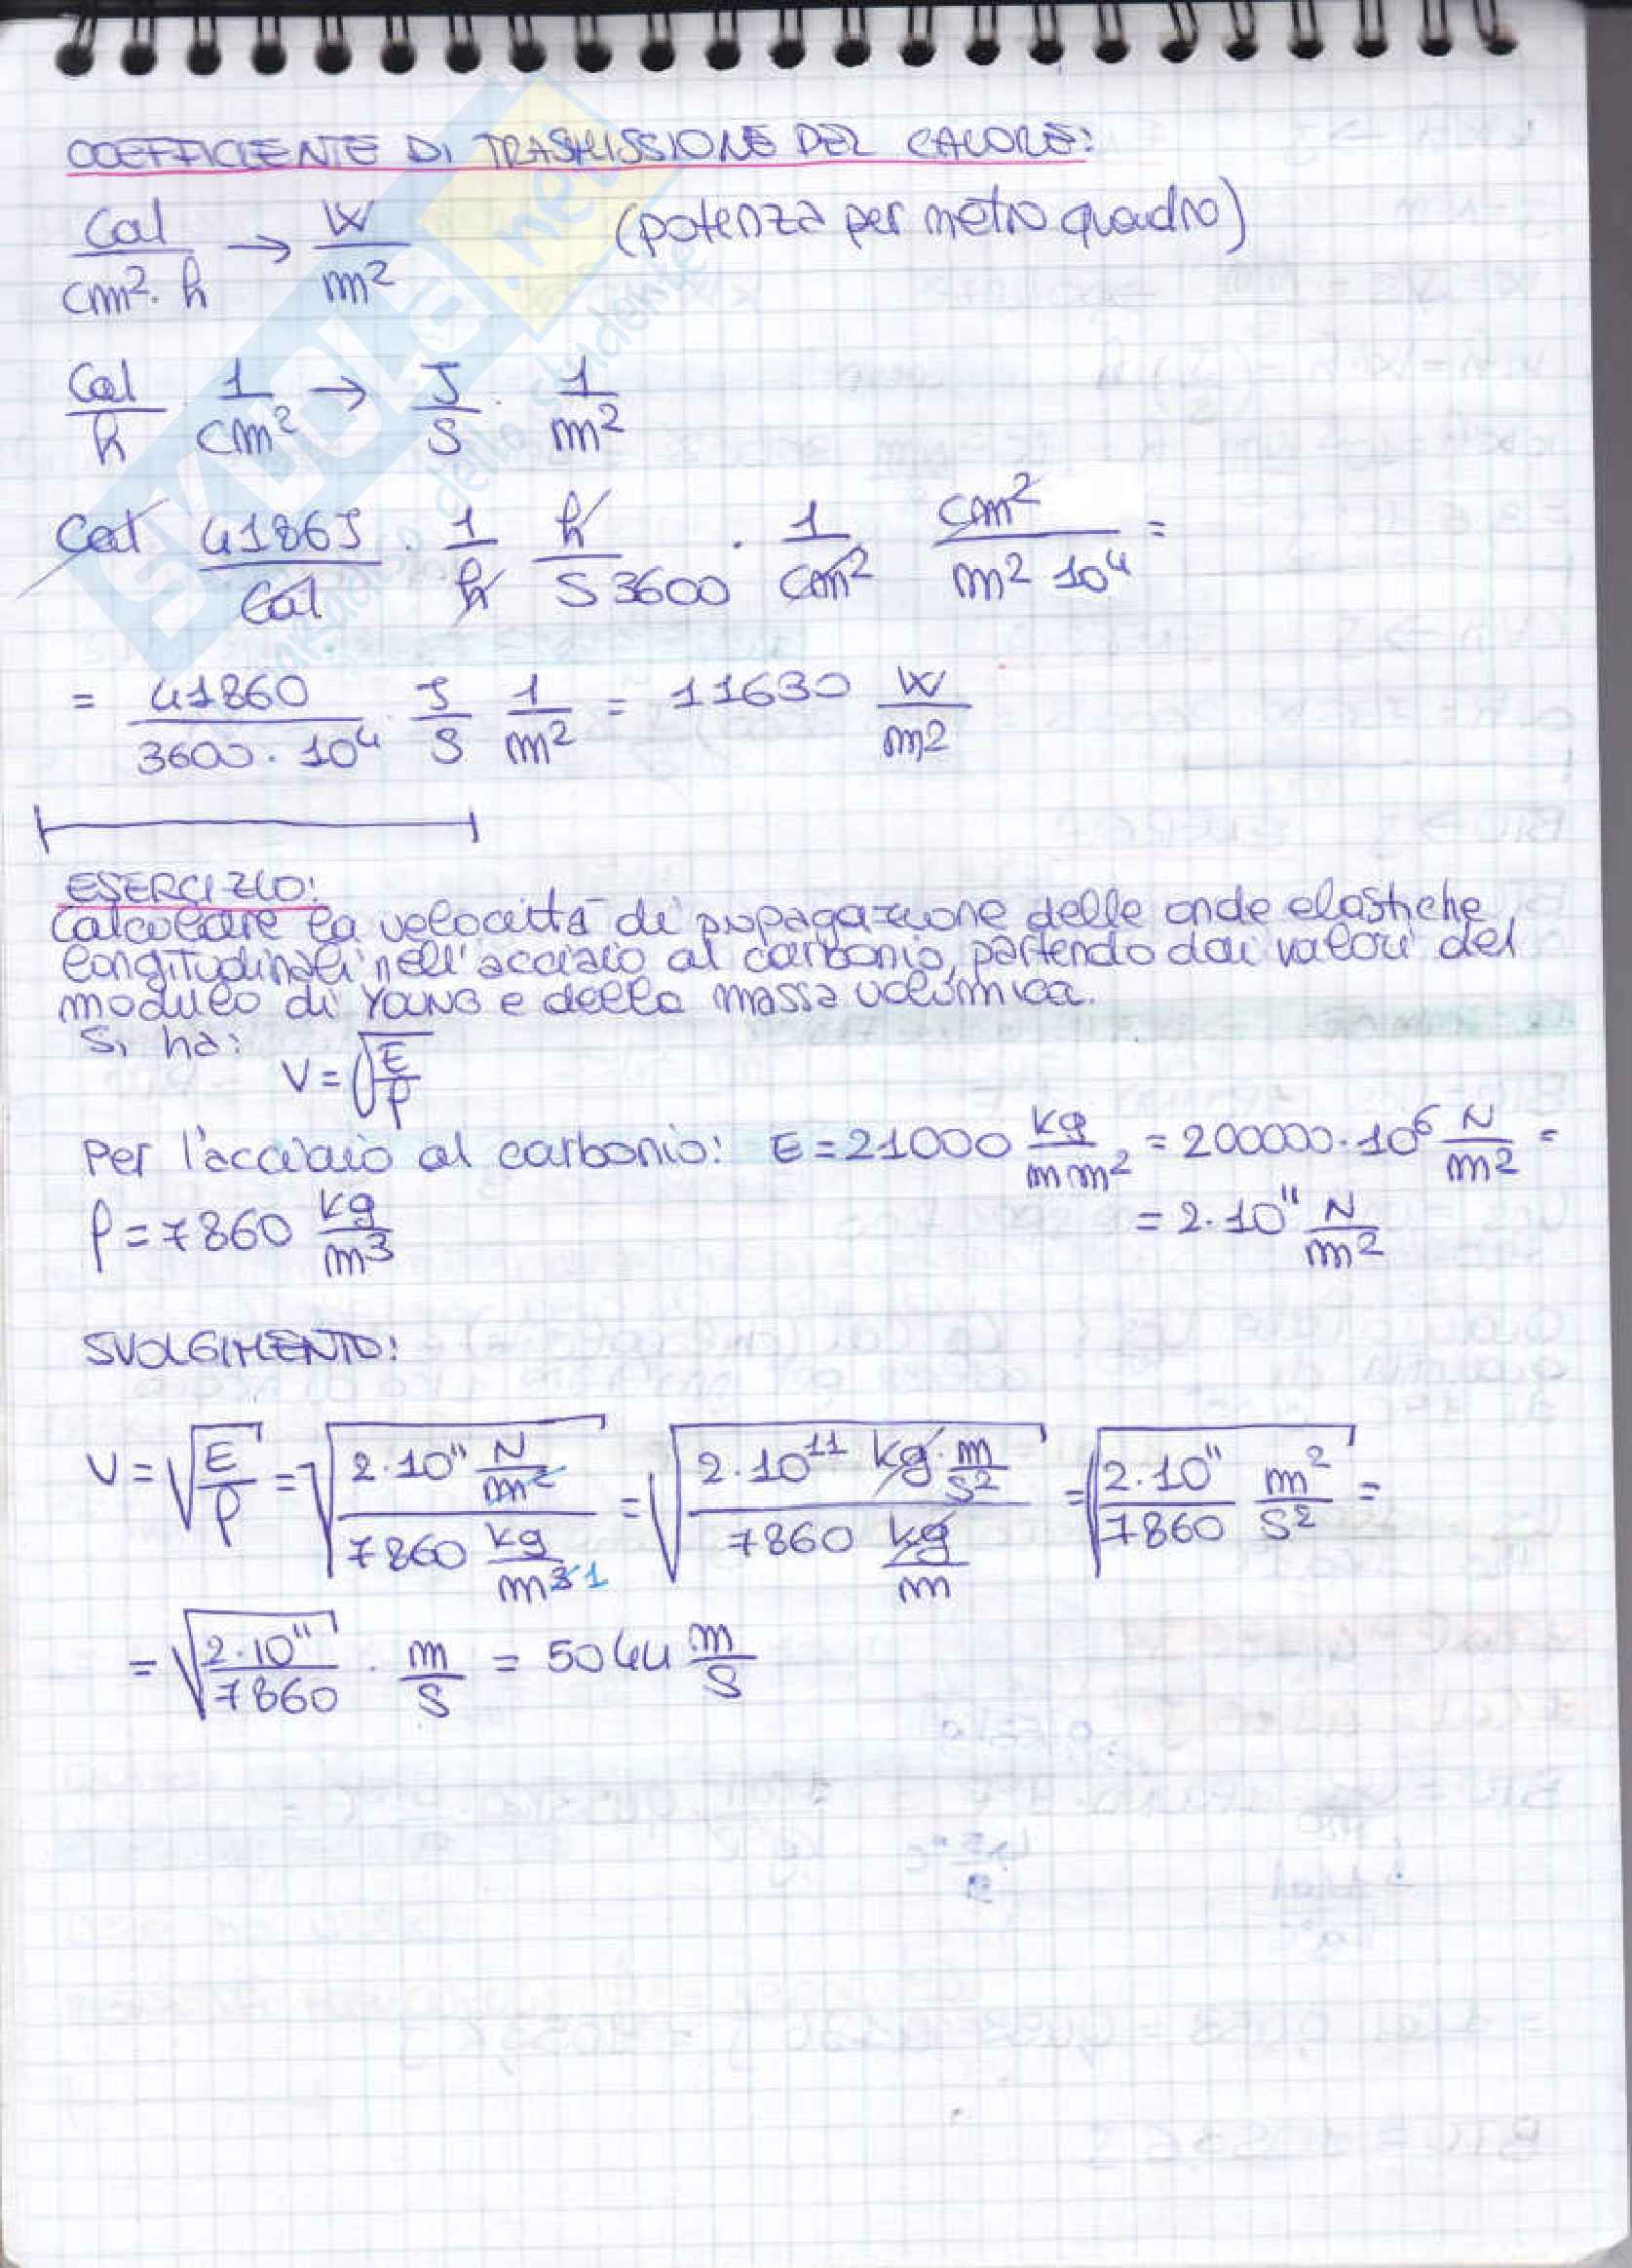 COEFFICIENTE DI TRASMISSIONE DEL CALORE:
Cal/(cm²·h) → W/m² (potenza per metro quadro)
Cal/h · 1/cm² → J/s · 1/m²
Cal 4186J/Cal · 1/h h/(S 3600) · 1/cm² cm²/(m² 10⁴) =
= 41860/(3600·10⁴) J/S 1/m² = 11630 W/m²
ESERCIZIO:
Calcolare la velocità di propagazione delle onde elastiche
longitudinali nell'acciaio al carbonio, partendo dai valori del
modulo di YOUNG e della massa volumica.
Si ha:
V = √(E/ρ)
Per l'acciaio al carbonio: E = 21000 kg/mm² = 200000·10⁶ N/m² =
= 2·10¹¹ N/m²
ρ = 7860 kg/m³
SVOLGIMENTO:
V = √(E/ρ) = √(2·10¹¹ N/m² / 7860 kg/m³ 1) = √(2·10¹¹ kg·m/S² / 7860 kg/m) = √(2·10¹¹/7860 m²/S²) =
= √(2·10¹¹/7860) · m/S = 5044 m/S
SKUOLA.net